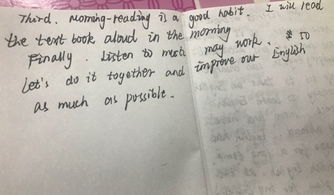 Third. Morning-reading is a good habit. I will read
the text book aloud in the morning
Finally. Listen to may work. so
Let's do it together and improve our English
as much as possible.